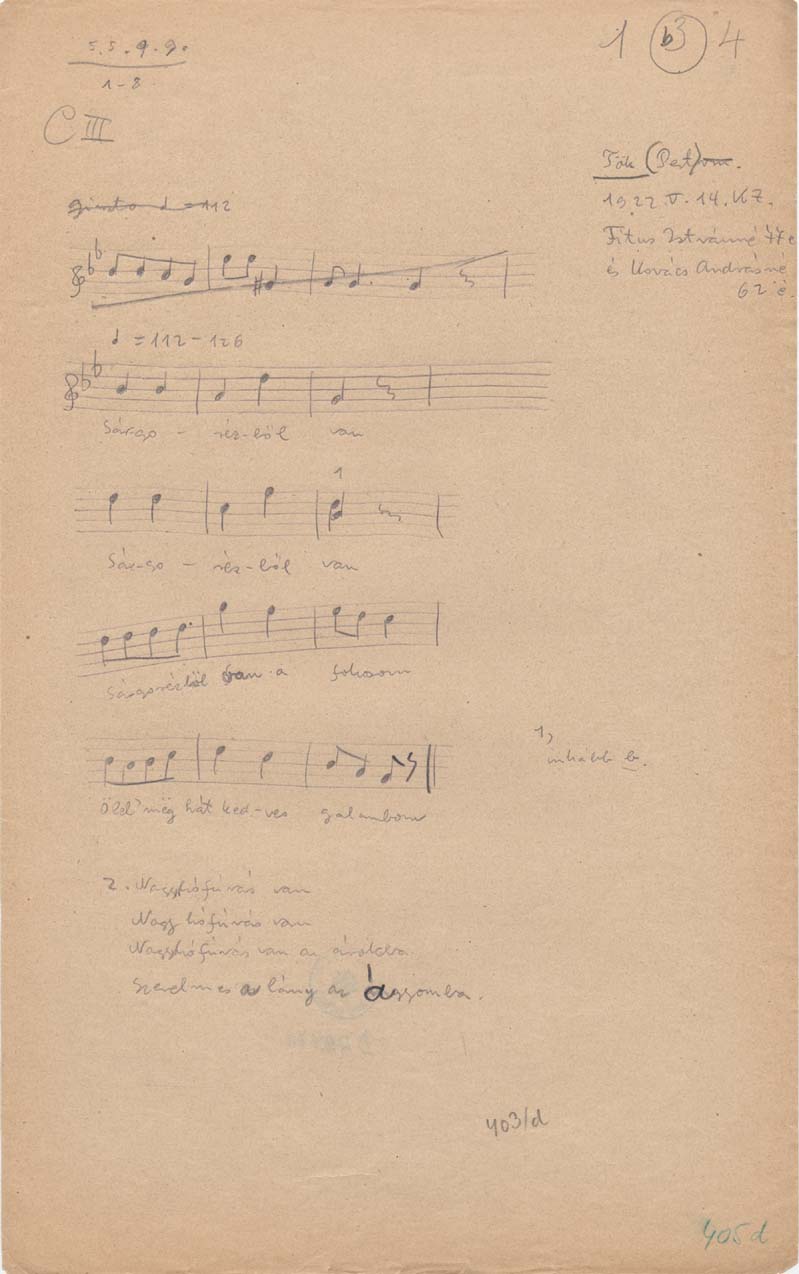 5. 5. 9. 9.
1-8.
1 b3 4
C III
Tök (Pest)om.
1922. V. 14. KZ.
Fitus Istvánné 47 é
és Kovács Andrásné
62 é.
giusto = 112
= 112 - 126
Sár-go - réz-ből van
1
Sár-go - réz-ből van
Sárgarézből van a fokosom
1,
inkább b.
Öleld még hát ked-ves galambom
2. Nagyhófúvás van
Nagy hófúvás van
Nagyhófúvás van az árokba
Szerelmes a lány az ágyomba.
403/d
405 d